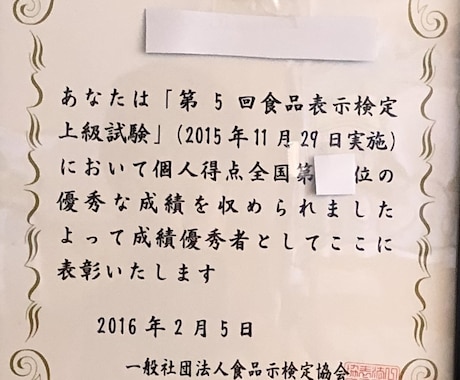 あなたは「第 5 回食品表示検定
上級試験」(2015年11月29日実施)
において個人得点全国第 位の
優秀な成績を収められました
よって成績優秀者としてここに
表彰いたします
2016年2月5日
一般社団法人食品示検定協会